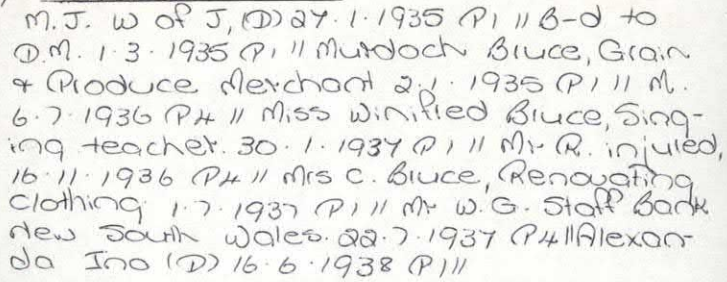 M. J. W of J, (D) 27.1.1935 P1 // B-d to
D.M. 1.3.1935 P1 // Murdoch Bruce, Grain
& Produce Merchant 2.1.1935 P1 // M.
6.7.1936 P4 // Miss Winified Bruce, Sing-
ing teacher. 30.1.1937 P1 // Mr R. injuied,
16.11.1936 P4 // Mrs C. Bruce, Renovating
Clothing. 1.7.1937 P1 // Mr W. G. Staff Bank
New South Wales. 22.7.1937 P4 // Alexan-
da Ino (D) 16.6.1938 P1 //